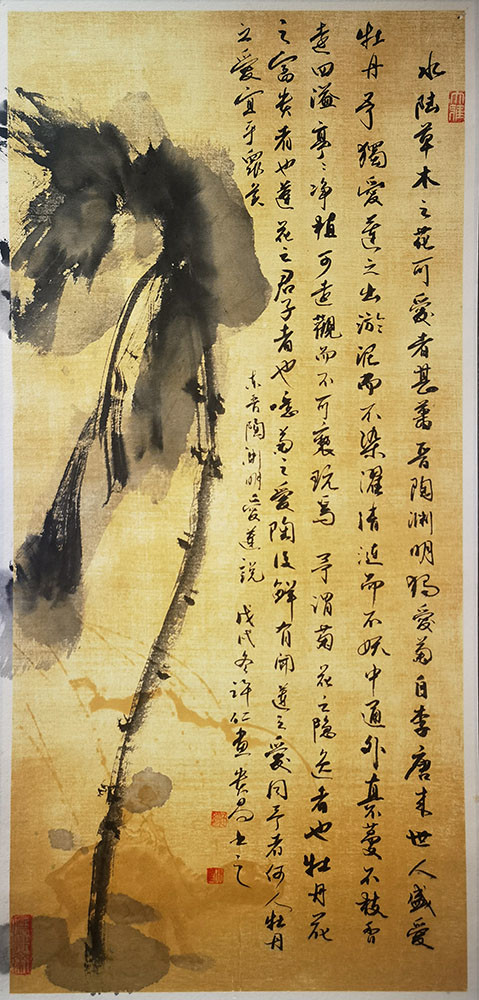 水陸草木之花可愛者甚蕃晋陶渊明独愛菊自李唐来世人盛愛
牡丹予獨愛蓮之出淤泥而不染濯清涟而不妖中通外真不蔓不枝香
遠四溢亭〻净植可遠觀而不可亵玩焉 予謂菊花之隐逸者也牡丹花
之富貴者也蓮花之君子者也噫菊之愛陶後鮮有闻蓮之愛同予者何人牡丹
之愛宜乎眾矣
东晋陶渊明愛蓮説 戊戌冬許仁画贵昌书之
大雅